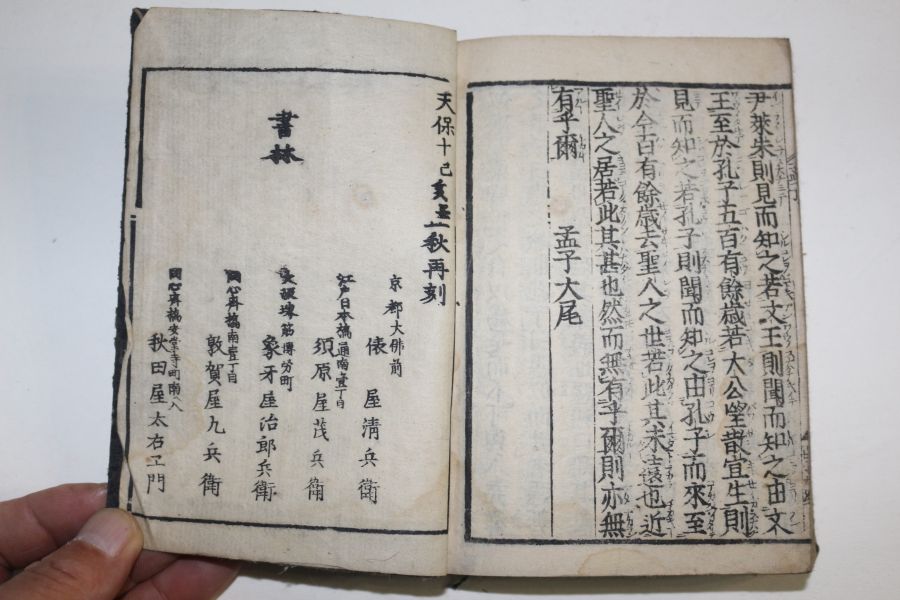 尹萊朱則見而知之若文王則聞而知之由文
王至於孔子五百有餘歲若太公望散宜生則
見而知之若孔子則聞而知之由孔子而來至
於今百有餘歲去聖人之世若此其未遠也近
聖人之居若此其甚也然而無有乎爾則亦無
有乎爾 孟子大尾
天保十己亥孟秋再刻
書林
京都大佛前
俵屋清兵衛
江戸日本橋通南壹丁目
須原屋茂兵衛
大阪堺筋博労町
象牙屋治郎兵衛
同心斉橋南壹丁目
敦賀屋九兵衛
同心斉橋安堂寺町南入
秋田屋太右エ門